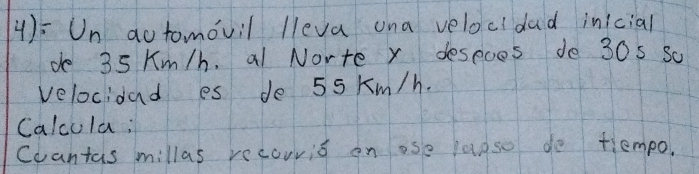 4): Un automóvil lleva una velocidad inicial
de 35 Km/h. al Norte y despues de 30s su
velocidad es de 55 Km/h.
Calcula:
Cuantas millas recorrió en ese lapso de tiempo.